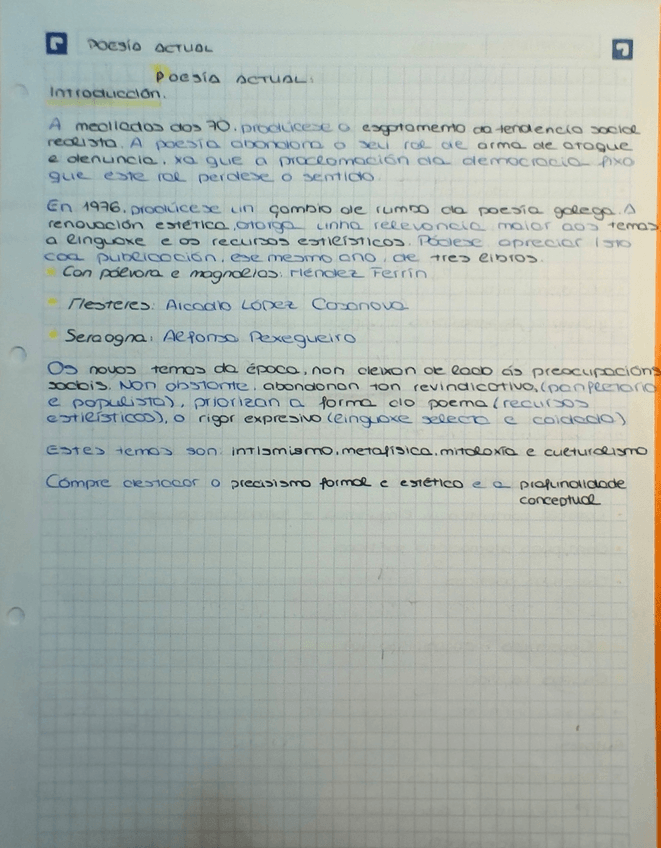 POESÍA ACTUAL
POESÍA ACTUAL:
Introducción.
A mediados dos 70, prodúcese o esgotamento da tendencia social
realista. A poesía abandona o seu rol de arma de ataque
e denuncia, xa que a proclamación da democracia fixo
que este rol perdese o sentido.
En 1976, prodúcese un cambio de rumbo da poesía galega. A
renovación estética, otorga unha relevancia maior aos temas
a linguaxe e os recursos estilísticos. Pódese apreciar isto
coa publicación, ese mesmo ano, de tres libros.
Con pólvora e magnolias: Méndez Ferrín
Mesteres: Arcadio López Casanova
Seraogna: Alfonso Pexegueiro
Os novos temas da época, non deixan de lado ás preocupacións
sociais. Non obstante, abandonan ton revindicativo, (panfletario
e populista), priorizan a forma do poema (recursos
estilísticos), o rigor expresivo (linguaxe selecta e coidada)
Estes temas son: intismismo, metafísica, mitoloxía e culturalismo
Cómpre destacar o precisismo formal e estético e a profundidade
conceptual